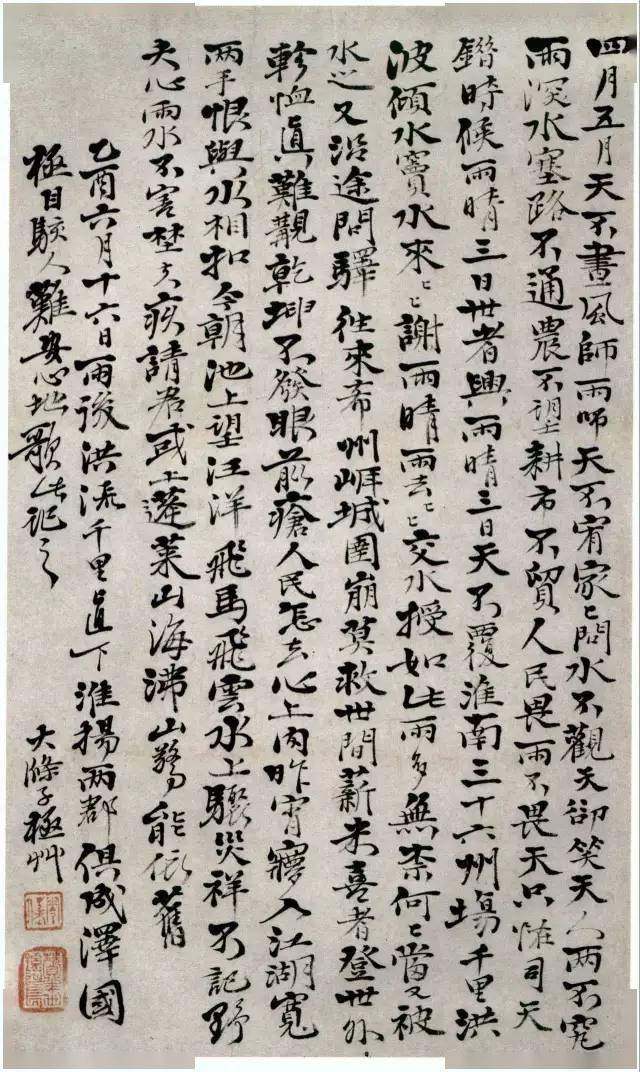 四月五月天不晝風師雨師天不宥家〻問水不觀天卻笑天人兩不究
雨深水塞路不通農不望耕市不貿人民畏雨不畏天只恠司天
錯時候雨晴三日世者興雨晴三日天不覆淮南三十六州場千里洪
波傾水竇水來〻謝雨晴雨去〻交水授如此雨多無柰何〻當又被
水之又沿途問驛往來希州城圍崩莫救世間薪米喜者登世外
軫恤真難覯乾坤不發眼前瘡人民怎去心上肉昨宵夢入江湖寬
兩手恨與水相扣今朝池上望汪洋飛馬飛雲水上驟災祥不記野
夫心雨水不害埜夕疾請君或上蓬萊山海沸山能依舊
乙酉六月十六日雨後洪流千里直下淮揚兩郡俱成澤國
極目駭人難安心地歌此記之
大滌子極艸